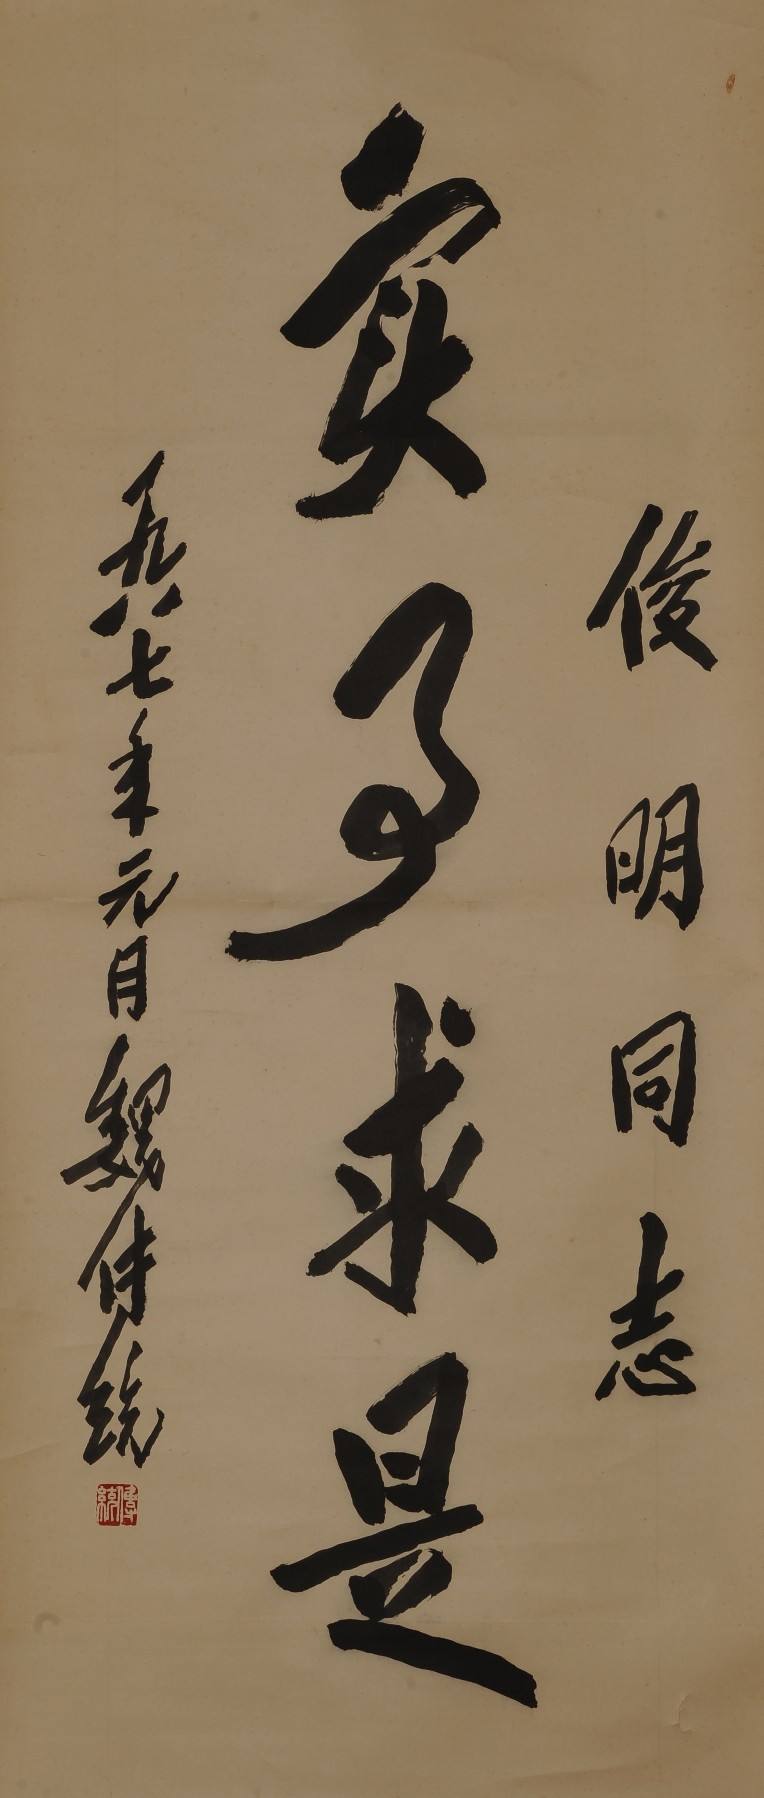 俊明同志
实事求是
一九八七年元月魏传统
傳統